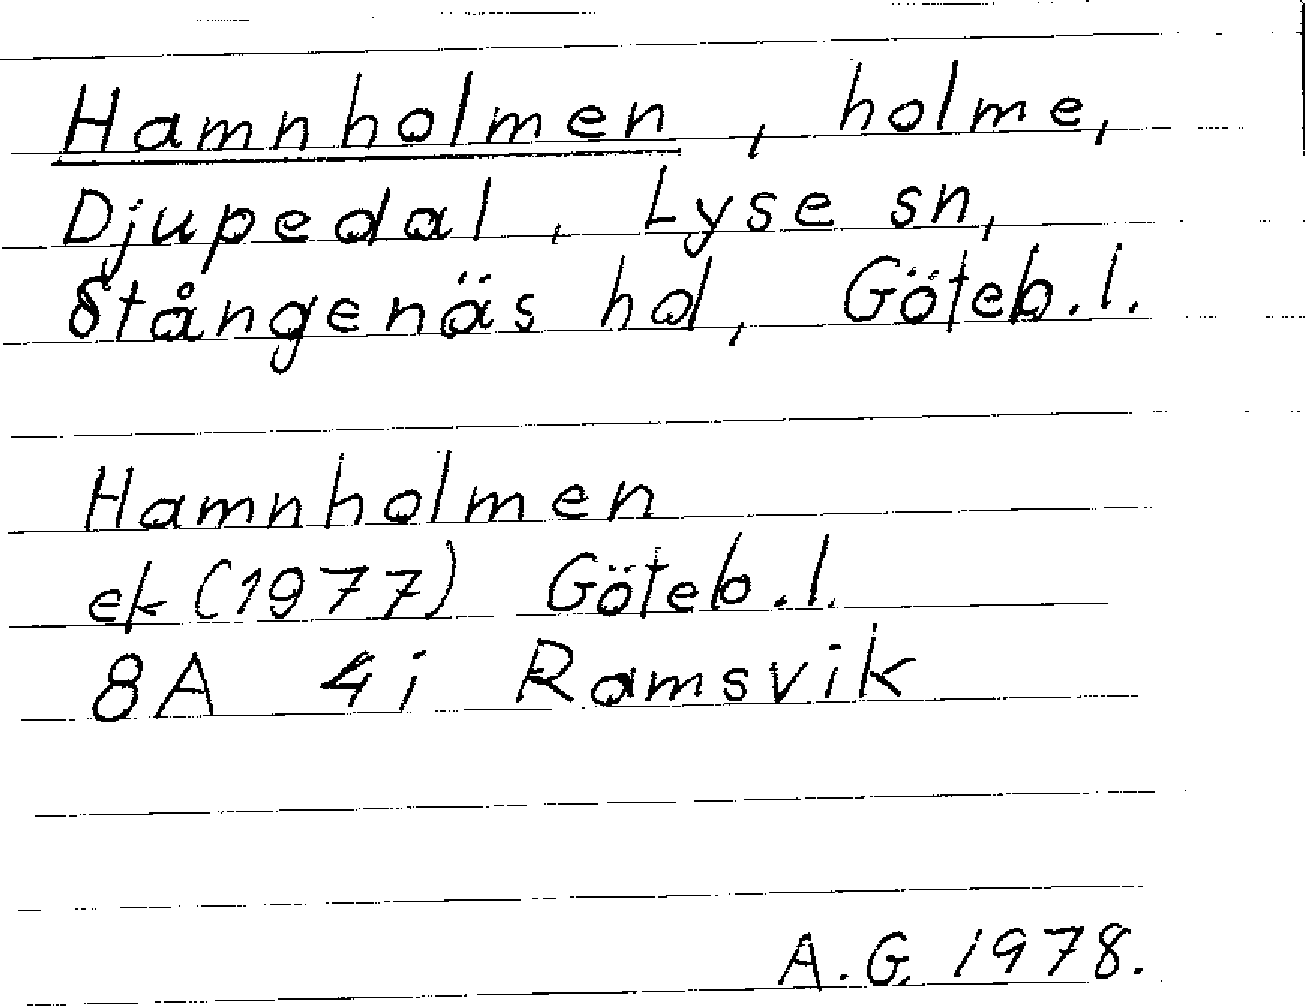 Hamnholmen, holme,
Djupedal, Lyse sn,
Stångenäs hd, Göteb.l.
Hamnholmen
ek (1977) Göteb.l.
8A 4i Ramsvik
A.G. 1978.